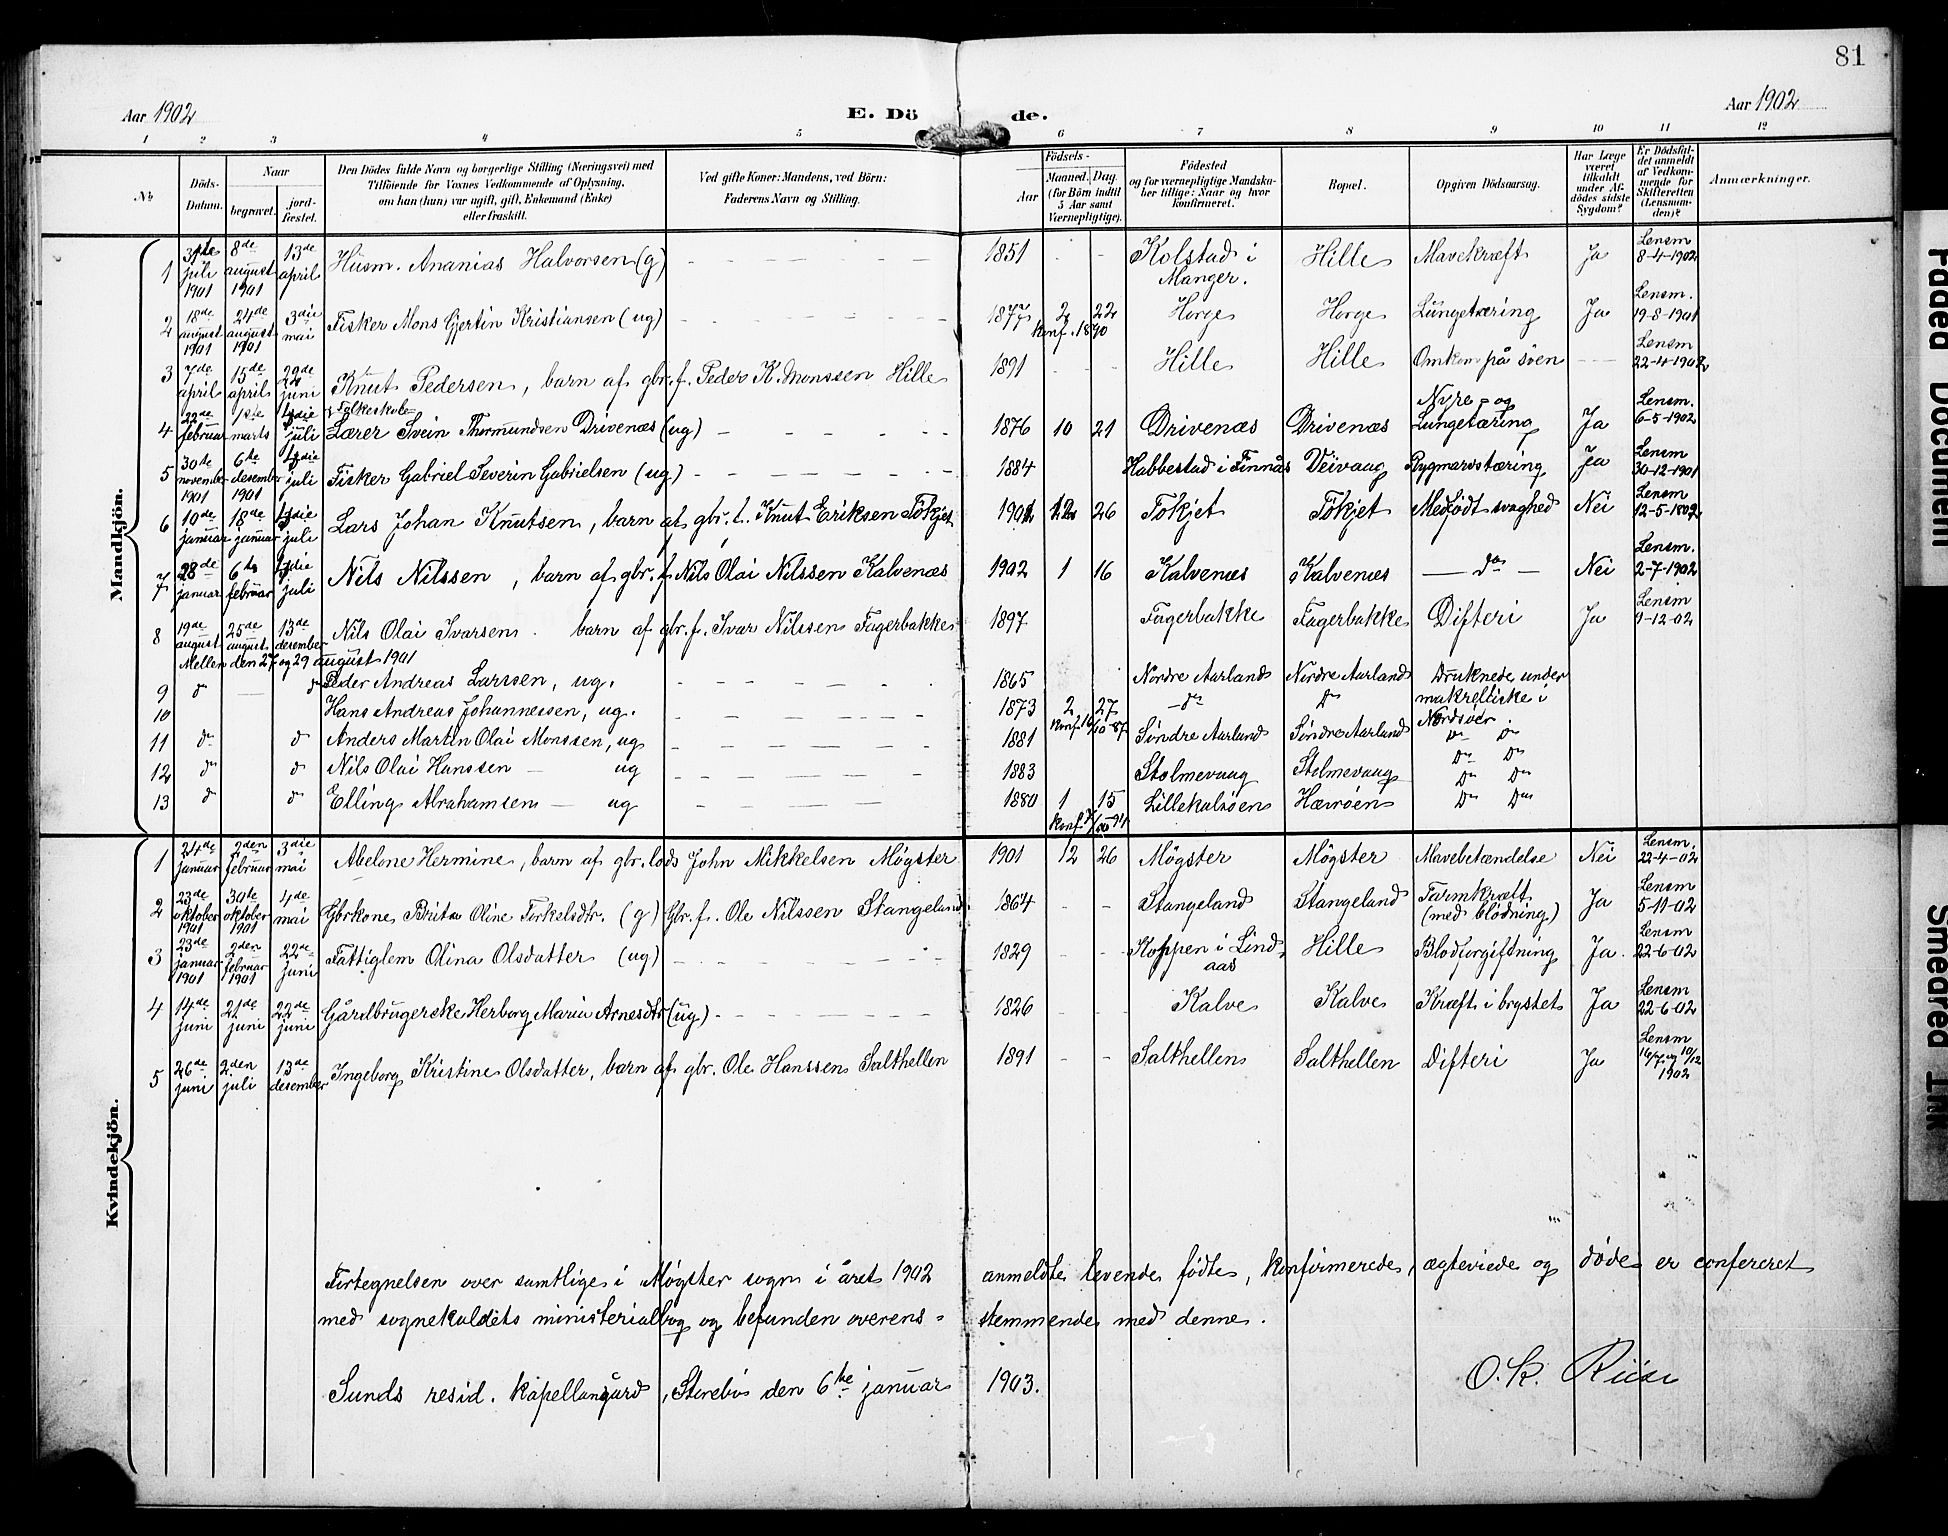 81
Aar 1902 E. Dö de. Aar 1902
1 2 3 4 5 6 7 8 9 10 11 12
No. Döds-Datum. Naar begravet. jordfæstet. Den Dödes fulde Navn og borgerlige Stilling (Næringsvei) med Tilföiende for Voxnes Vedkommende af Oplysning, om han (hun) var ugift, gift, Enkemand (Enke) eller fraskilt. Ved gifte Koner: Mandens, ved Börn: Faderens Navn og Stilling. Födsels- Aar Maaned. Dag. (for Börn indtil 5 Aar samt Værnepligtige). Födested og for værnepligtige Mandskaber tillige: Naar og hvor konfirmeret. Bopæl. Opgiven Dödsaarsag. Har Læge været tilkaldt under Afdödes sidste Sygdom? Er Dödsfaldet anmeldt af Vedkommende for Skifteretten (Lensmanden)? Anmærkninger.
Mandkjön.
1 31te juli 1901 8de august 1901 13de april Husm. Ananias Halvorsen (g) - - - 1851 - - Kolstad i Manger. Hille Mavekræft Ja Lensm 8-4-1902
2 18de august 1901 24de august 1901 3die mai Fisker Mons Gjertin Kristiansen (ug) - - - 1877 2 22 konf. 1890 Horge Horge Lungetæring Ja Lensm. 19-8-1901
3 7de april 15de april 22de juni Knut Pedersen, barn af gbr.f. Peder K. Monssen Hille 1891 Hille Hille Omkom på söen - - Lensm 22-4-1902
4 22de februar 1ste marts 13die juli Folkeskole Lærer Svein Thormundsen Drivenæs (ug) - - - 1876 10 21 Drivenæs Drivenæs Nyre- og Lungetæring Ja Lensm. 6-5-1902
5 30te november 1901 6te desember 1901 13die juli Fisker Gabriel Severin Gabrielsen (ug) - - - 1884 Habbestad i Finnås Veivaag Rygmarvstæring Ja Lensm 30-12-1901
6 10de januar 18de januar 13die juli Lars Johan Knutsen, barn af gbr.f. Knut Eriksen Tökjet 1901 12 26 Tökjet Tökjet Medfödt svaghed Nei Lensm 12-5-1802
7 28de januar 6te februar 13die juli Nils Nilssen, barn af gbr.f. Nils Olai Nilssen Kalvenæs 1902 1 16 Kalvenæs Kalvenæs - do - Nei Lensm. 2-7-1902
8 19de august 25de august 13de desember Nils Olai Ivarsen. barn af gbr.f. Ivar Nilssen Fagerbakke 1897 Fagerbakke Fagerbakke Difteri Ja Lensm 9-12-02
Mellem den 27 og 29 august 1901
9 do - do Peder Andreas Larssen, ug. - - - 1865 Nordre Aarland Nordre Aarland Druknede under makrelfiske i Nordsöen
10 Hans Andreas Johannessen, ug. - - - 1873 2 27 - do - do
11 do do Anders Martin Olai Monssen, ug - - - 1881 Söndre Aarland Söndre Aarland do do
12 do do Nils Olai Hanssen - ug - - - 1883 Stolmevaag Stolmevaag do do
13 do do Elling Abrahamsen - ug - - - 1880 1 15 Lillekalsöen Hævröen do do
Kvindekjön.
1 24de januar 2den februar 3die mai Abelone Hermine, barn af gbr. lods John Mikkelsen Møgster 1901 12 26 Møgster Møgster Mavebetændelse Nei Lensm. 22-4-02
2 23de oktober 1901 30te oktober 1901 4de mai Gbrkone Brita Oline Torkelsdtr. (g) Gbr.f. Ole Nilssen Stangeland. 1864 - - Stangeland Stangeland Tarmkræft (med blödning) Ja Lensm 5-11-02
3 23de januar 1901 2den februar 1901 22de juni Fattiglem Olina Olsdatter (ug) - - - 1829 - - Koppen i Lindaas Hille Blodforgiftning Ja. Lensm 22-6-02
4 14de juni 21de juni 22de juni Gårdbrugerske Herborg Maria Arnesdtr (ug) - - - 1826 - - Kalve Kalve Kræft i brystet Ja Lensm 22-6-02
5 26de juni 2den juli 13de desember Ingeborg Kristine Olsdatter, barn af gbr. Ole Hanssen Salthellen 1891 - - Salthellen Salthellen Difteri Ja Lensm 16/7 og 10/12 1902
Fortegnelsen over samtlige i Møgster sogn i året 1902 anmeldte levende födte, konfirmerede, ægteviede og döde er confereret
med sognekaldets ministerialbog og befunden overens-stemmende med denne.
Sunds resid. kapellangård, Storebö den 6te januar 1903. O. K. Riise
Faded Document
Smeared Ink